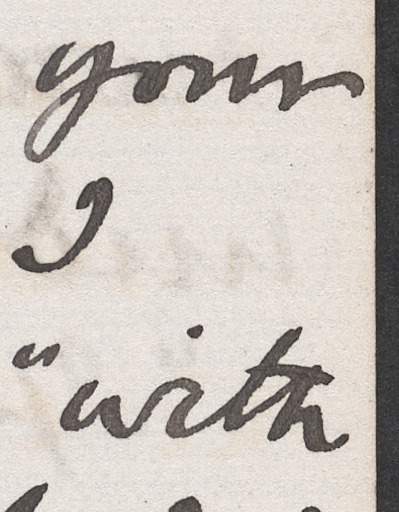 your
I
"with